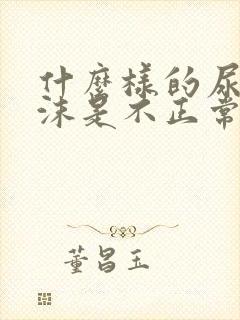 什麼樣的尿
沫是不正常
董昌玉